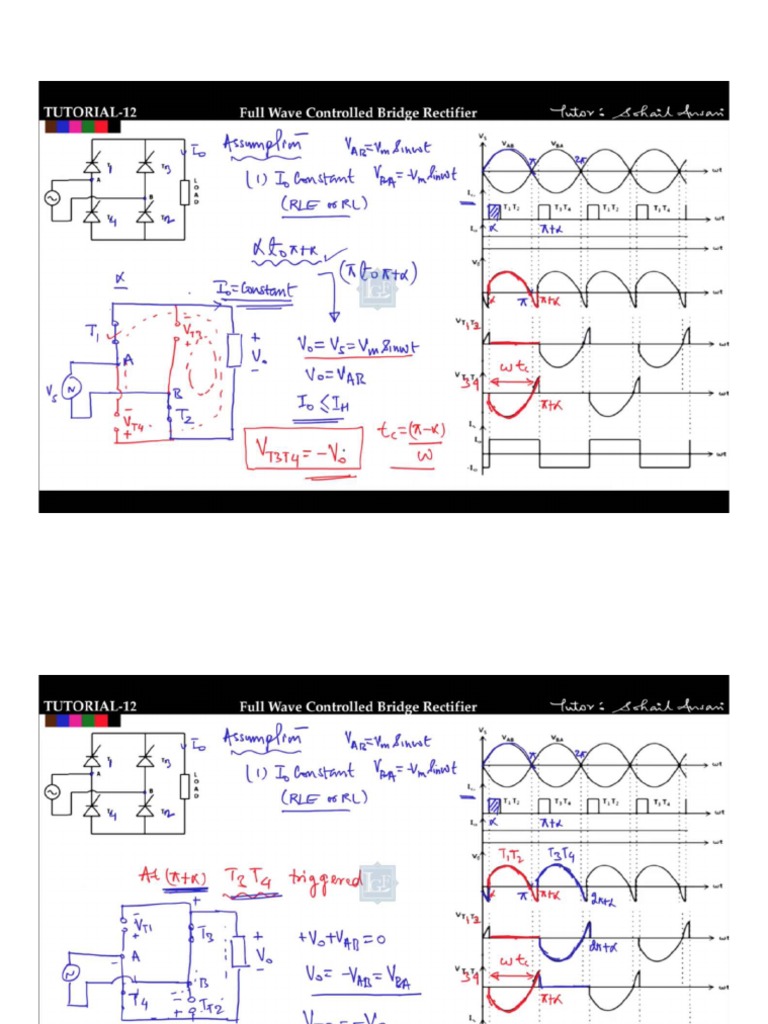 TUTORIAL-12 Full Wave Controlled Bridge Rectifier Tutor: Sohail Ansari
T1 T3 I0
A B
T4 T2
LOAD
Assumption V_AB=Vm Sinωt
(1) I0 Constant V_BA=-Vm Sinωt
(RLE or RL)
α to π+α
(π to π+α)
α
I0=Constant
T1 V_T3
A
B
Vs
V_T4 T2
+ V0 -
V0=Vs=Vm Sinωt
V0=V_AB
I0≤I_H
V_T3T4=-V0
tc=(π-α)/ω
Vs V_AB π V_BA 2π ωt
T1 T2 T3 T4 T1 T2 T3 T4 ωt
α π+α
V0
α π π+α ωt
ωt
ωtc
34 π+α ωt
I0
-I0 ωt
TUTORIAL-12 Full Wave Controlled Bridge Rectifier Tutor: Sohail Ansari
T1 T3 I0
A B
T4 T2
LOAD
Assumption V_AB=Vm Sinωt
(1) I0 Constant V_BA=-Vm Sinωt
(RLE or RL)
At (π+α) T3 T4 triggered
V_T1 T3
A
B
T4 T2
+ V0 -
+V0+V_AB=0
V0=-V_AB=V_BA
Vs V_AB π V_BA 2π ωt
T1 T2 T3 T4 T1 T2 T3 T4 ωt
α π+α
T1T2 T3T4
V0
α π π+α 2π+α ωt
2π+α ωt
ωtc
34 π+α ωt